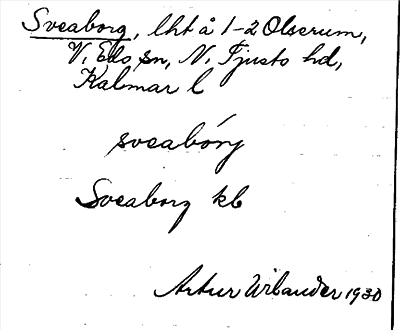 Sveaborg, lht å 1-2 Olserum,
V. Eds sn, N. Tjusts hd,
Kalmar l
sveabórg
Sveaborg kb
Artur Wilander 1930